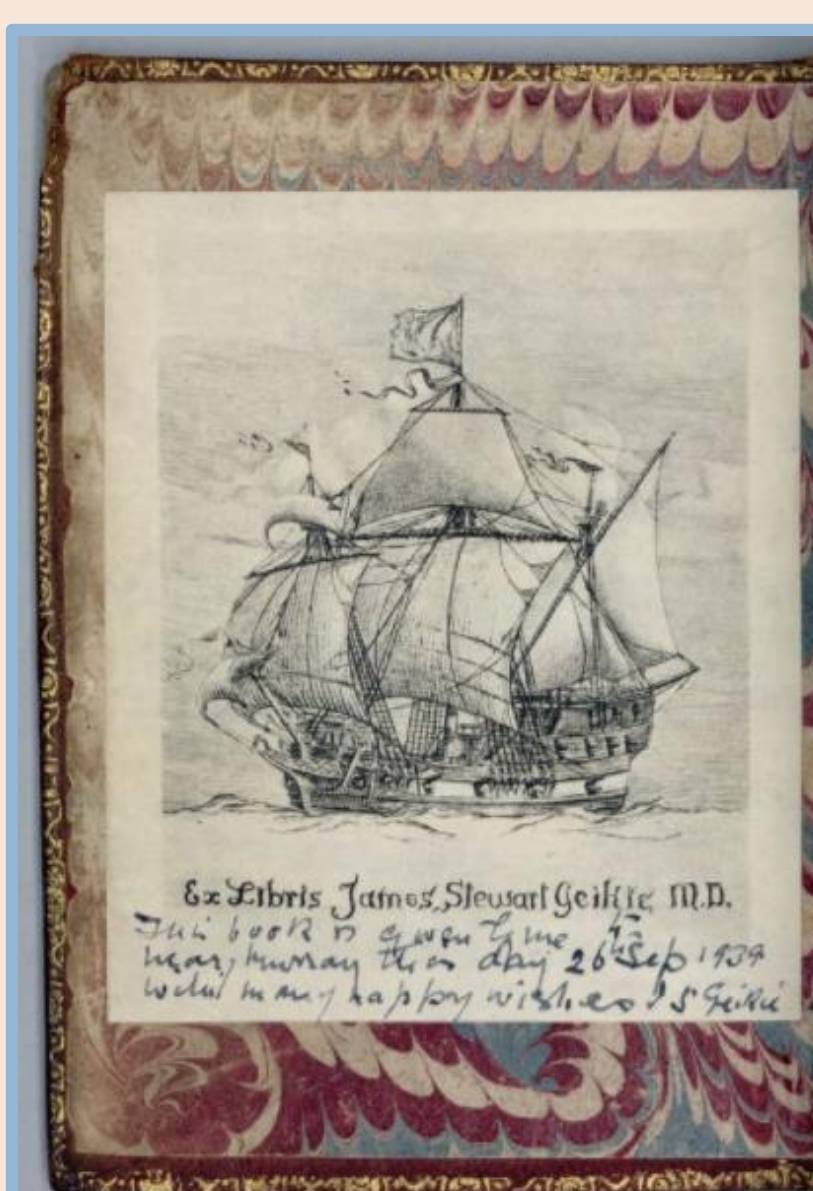 Ex Libris James Stewart Geikie M.D.
This book is given by me to
Murray this day 26th Sep 1939
with many happy wishes J S Geikie